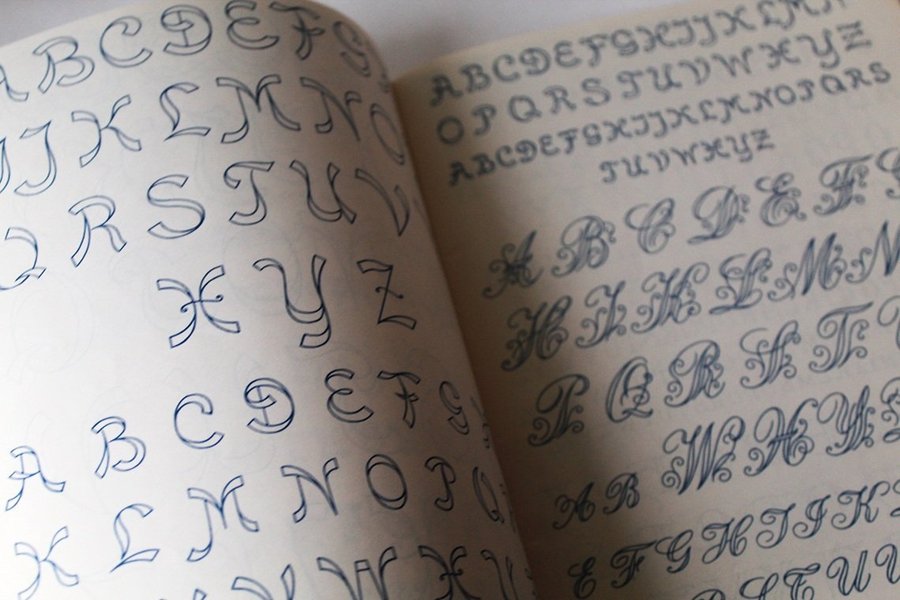 A B C D E F G
I J K L M N O
Q R S T U V
X Y Z
A B C D E F G
K L M N O P Q
V W X
A B C D E F G H I J J K L M N
O P Q R S T U V W X Y Z
A B C D E F G H I J J K L M N O P Q R S
T U V W X Y Z
A B C D E F
H I K L M N
P Q R S T
W X Y
A B
E F G H I J K
U V